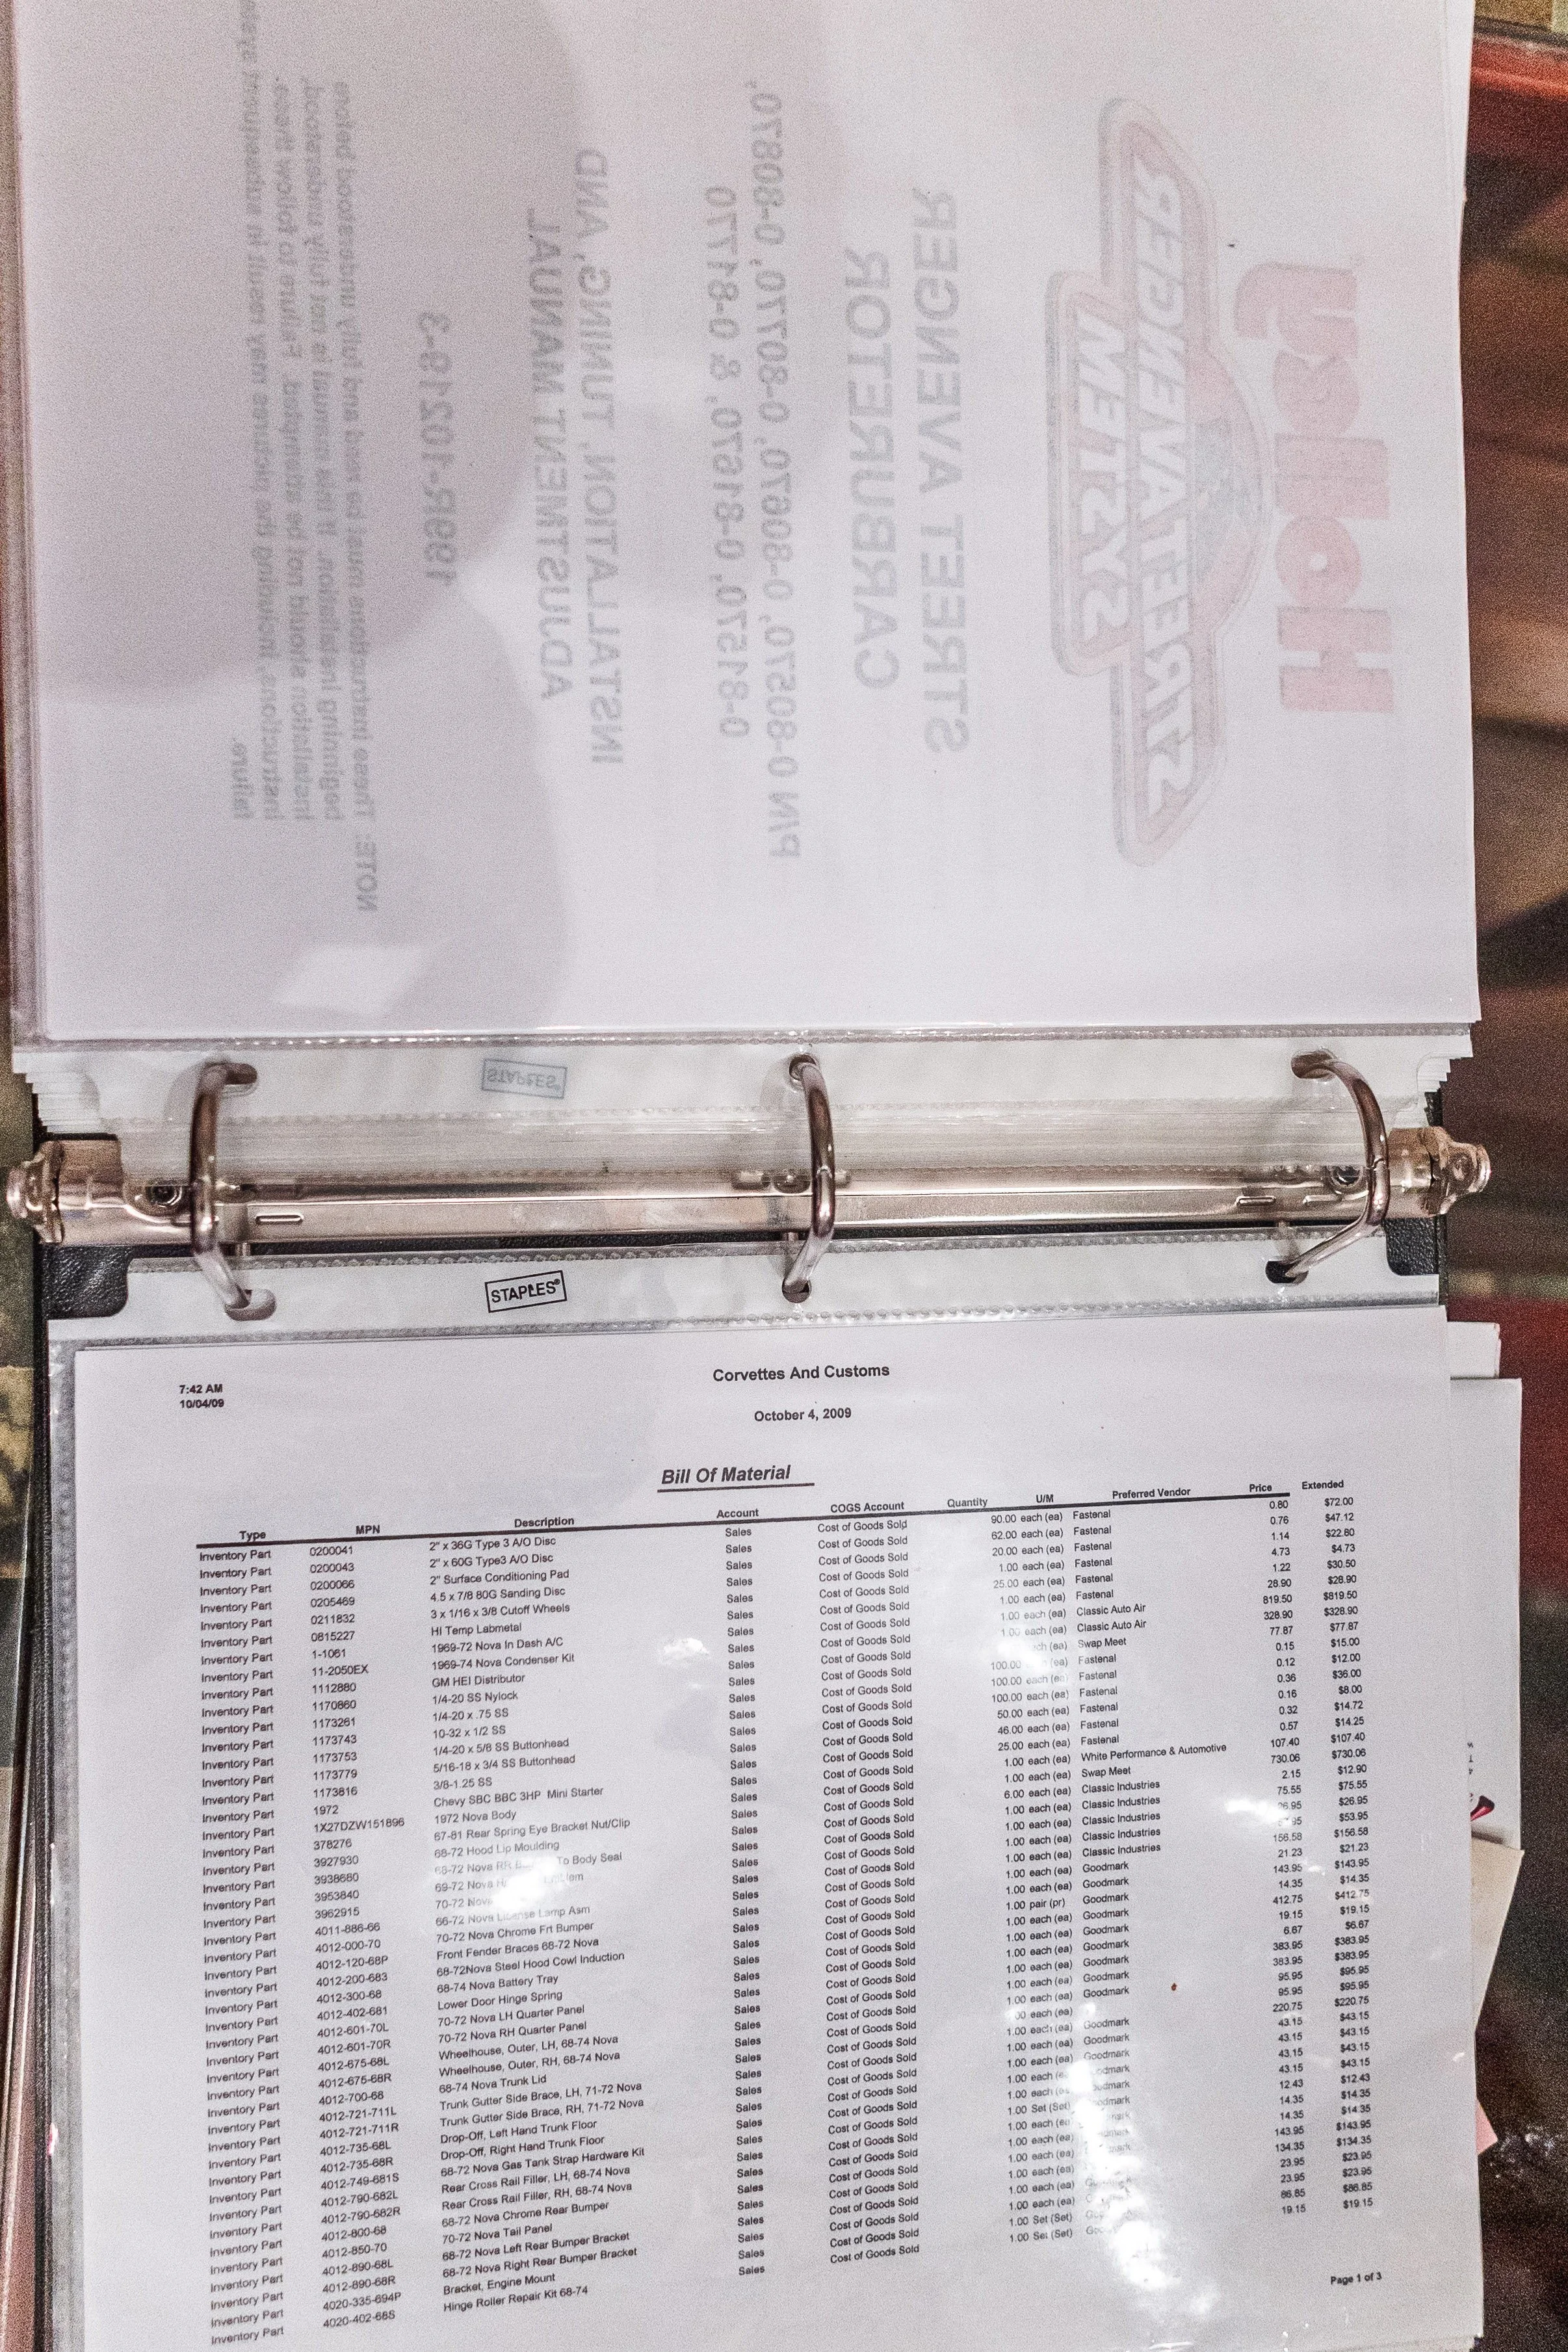 Holley
STREET AVENGER
SYSTEM
STREET AVENGER
CARBURETOR
P/N 0-80570, 0-80670, 0-80770, 0-80870,
0-81570, 0-81670, & 0-81770
INSTALLATION, TUNING, AND
ADJUSTMENT MANUAL
199R-10219-3
NOTE: These instructions must be read and fully understood before
beginning installation. If this manual is not fully understood,
installation should not be attempted. Failure to follow these
instructions, including the pictures may result in subsequent system
failure.
STAPLES
STAPLES®
7:42 AM
10/04/09
Corvettes And Customs
October 4, 2009
Bill Of Material
Type MPN Description Account COGS Account Quantity U/M Preferred Vendor Price Extended
Inventory Part 0200041 2" x 36G Type 3 A/O Disc Sales Cost of Goods Sold 90.00 each (ea) Fastenal 0.80 $72.00
Inventory Part 0200043 2" x 60G Type3 A/O Disc Sales Cost of Goods Sold 62.00 each (ea) Fastenal 0.76 $47.12
Inventory Part 0200066 2" Surface Conditioning Pad Sales Cost of Goods Sold 20.00 each (ea) Fastenal 1.14 $22.80
Inventory Part 0205469 4.5 x 7/8 80G Sanding Disc Sales Cost of Goods Sold 1.00 each (ea) Fastenal 4.73 $4.73
Inventory Part 0211832 3 x 1/16 x 3/8 Cutoff Wheels Sales Cost of Goods Sold 25.00 each (ea) Fastenal 1.22 $30.50
Inventory Part 0815227 HI Temp Labmetal Sales Cost of Goods Sold 1.00 each (ea) Fastenal 28.90 $28.90
Inventory Part 1-1061 1969-72 Nova In Dash A/C Sales Cost of Goods Sold 1.00 each (ea) Classic Auto Air 819.50 $819.50
Inventory Part 11-2050EX 1969-74 Nova Condenser Kit Sales Cost of Goods Sold 1.00 each (ea) Classic Auto Air 328.90 $328.90
Inventory Part 1112880 GM HEI Distributor Sales Cost of Goods Sold (ea) Swap Meet 77.87 $77.87
Inventory Part 1170860 1/4-20 SS Nylock Sales Cost of Goods Sold 100.00 (ea) Fastenal 0.15 $15.00
Inventory Part 1173261 1/4-20 x .75 SS Sales Cost of Goods Sold 100.00 each (ea) Fastenal 0.12 $12.00
Inventory Part 1173743 10-32 x 1/2 SS Sales Cost of Goods Sold 100.00 each (ea) Fastenal 0.36 $36.00
Inventory Part 1173753 1/4-20 x 5/8 SS Buttonhead Sales Cost of Goods Sold 50.00 each (ea) Fastenal 0.16 $8.00
Inventory Part 1173779 5/16-18 x 3/4 SS Buttonhead Sales Cost of Goods Sold 46.00 each (ea) Fastenal 0.32 $14.72
Inventory Part 1173816 3/8-1.25 SS Sales Cost of Goods Sold 25.00 each (ea) Fastenal 0.57 $14.25
Inventory Part 1972 Chevy SBC BBC 3HP Mini Starter Sales Cost of Goods Sold 1.00 each (ea) White Performance & Automotive 107.40 $107.40
Inventory Part 1X27DZW151896 1972 Nova Body Sales Cost of Goods Sold 1.00 each (ea) Swap Meet 730.06 $730.06
Inventory Part 378276 67-81 Rear Spring Eye Bracket Nut/Clip Sales Cost of Goods Sold 6.00 each (ea) Classic Industries 2.15 $12.90
Inventory Part 3927930 68-72 Hood Lip Moulding Sales Cost of Goods Sold 1.00 each (ea) Classic Industries 75.55 $75.55
Inventory Part 3938680 68-72 Nova RR To Body Seal Sales Cost of Goods Sold 1.00 each (ea) Classic Industries 26.95 $26.95
Inventory Part 3953840 69-72 Nova Sales Cost of Goods Sold 1.00 each (ea) Classic Industries $53.95
Inventory Part 3962915 70-72 Nova Sales Cost of Goods Sold 1.00 each (ea) Classic Industries 156.58 $156.58
Inventory Part 4011-886-66 66-72 Nova License Lamp Asm Sales Cost of Goods Sold 1.00 each (ea) Goodmark 21.23 $21.23
Inventory Part 4012-000-70 70-72 Nova Chrome Frt Bumper Sales Cost of Goods Sold 1.00 each (ea) Goodmark 143.95 $143.95
Inventory Part 4012-120-68P Front Fender Braces 68-72 Nova Sales Cost of Goods Sold 1.00 pair (pr) Goodmark 14.35 $14.35
Inventory Part 4012-200-683 68-72Nova Steel Hood Cowl Induction Sales Cost of Goods Sold 1.00 each (ea) Goodmark 412.75 $412.75
Inventory Part 4012-300-68 68-74 Nova Battery Tray Sales Cost of Goods Sold 1.00 each (ea) Goodmark 19.15 $19.15
Inventory Part 4012-402-681 Lower Door Hinge Spring Sales Cost of Goods Sold 1.00 each (ea) Goodmark 6.67 $6.67
Inventory Part 4012-601-70L 70-72 Nova LH Quarter Panel Sales Cost of Goods Sold 1.00 each (ea) Goodmark 383.95 $383.95
Inventory Part 4012-601-70R 70-72 Nova RH Quarter Panel Sales Cost of Goods Sold 1.00 each (ea) Goodmark 383.95 $383.95
Inventory Part 4012-675-68L Wheelhouse, Outer, LH, 68-74 Nova Sales Cost of Goods Sold 1.00 each (ea) Goodmark 95.95 $95.95
Inventory Part 4012-675-68R Wheelhouse, Outer, RH, 68-74 Nova Sales Cost of Goods Sold each (ea) 95.95 $95.95
Inventory Part 4012-700-68 68-74 Nova Trunk Lid Sales Cost of Goods Sold 1.00 each (ea) Goodmark 220.75 $220.75
Inventory Part 4012-721-711L Trunk Gutter Side Brace, LH, 71-72 Nova Sales Cost of Goods Sold 1.00 each (ea) Goodmark 43.15 $43.15
Inventory Part 4012-721-711R Trunk Gutter Side Brace, RH, 71-72 Nova Sales Cost of Goods Sold 1.00 each (ea) Goodmark 43.15 $43.15
Inventory Part 4012-735-68L Drop-Off, Left Hand Trunk Floor Sales Cost of Goods Sold 1.00 each 43.15 $43.15
Inventory Part 4012-735-68R Drop-Off, Right Hand Trunk Floor Sales Cost of Goods Sold 1.00 each 43.15 $43.15
Inventory Part 4012-749-681S 68-72 Nova Gas Tank Strap Hardware Kit Sales Cost of Goods Sold 1.00 Set (Set) 12.43 $12.43
Inventory Part 4012-790-682L Rear Cross Rail Filler, LH, 68-74 Nova Sales Cost of Goods Sold 1.00 each (ea) 14.35 $14.35
Inventory Part 4012-790-682R Rear Cross Rail Filler, RH, 68-74 Nova Sales Cost of Goods Sold 1.00 each (ea) 14.35 $14.35
Inventory Part 4012-800-68 68-72 Nova Chrome Rear Bumper Sales Cost of Goods Sold 1.00 each (ea) 143.95 $143.95
Inventory Part 4012-850-70 70-72 Nova Tail Panel Sales Cost of Goods Sold 1.00 each (ea) 134.35 $134.35
Inventory Part 4012-890-68L 68-72 Nova Left Rear Bumper Bracket Sales Cost of Goods Sold 1.00 each (ea) 23.95 $23.95
Inventory Part 4012-890-68R 68-72 Nova Right Rear Bumper Bracket Sales Cost of Goods Sold 1.00 each (ea) 23.95 $23.95
Inventory Part 4020-335-694P Bracket, Engine Mount Sales Cost of Goods Sold 1.00 Set (Set) 86.85 $86.85
Inventory Part 4020-402-68S Hinge Roller Repair Kit 68-74 Sales Cost of Goods Sold 1.00 Set (Set) 19.15 $19.15
Page 1 of 3